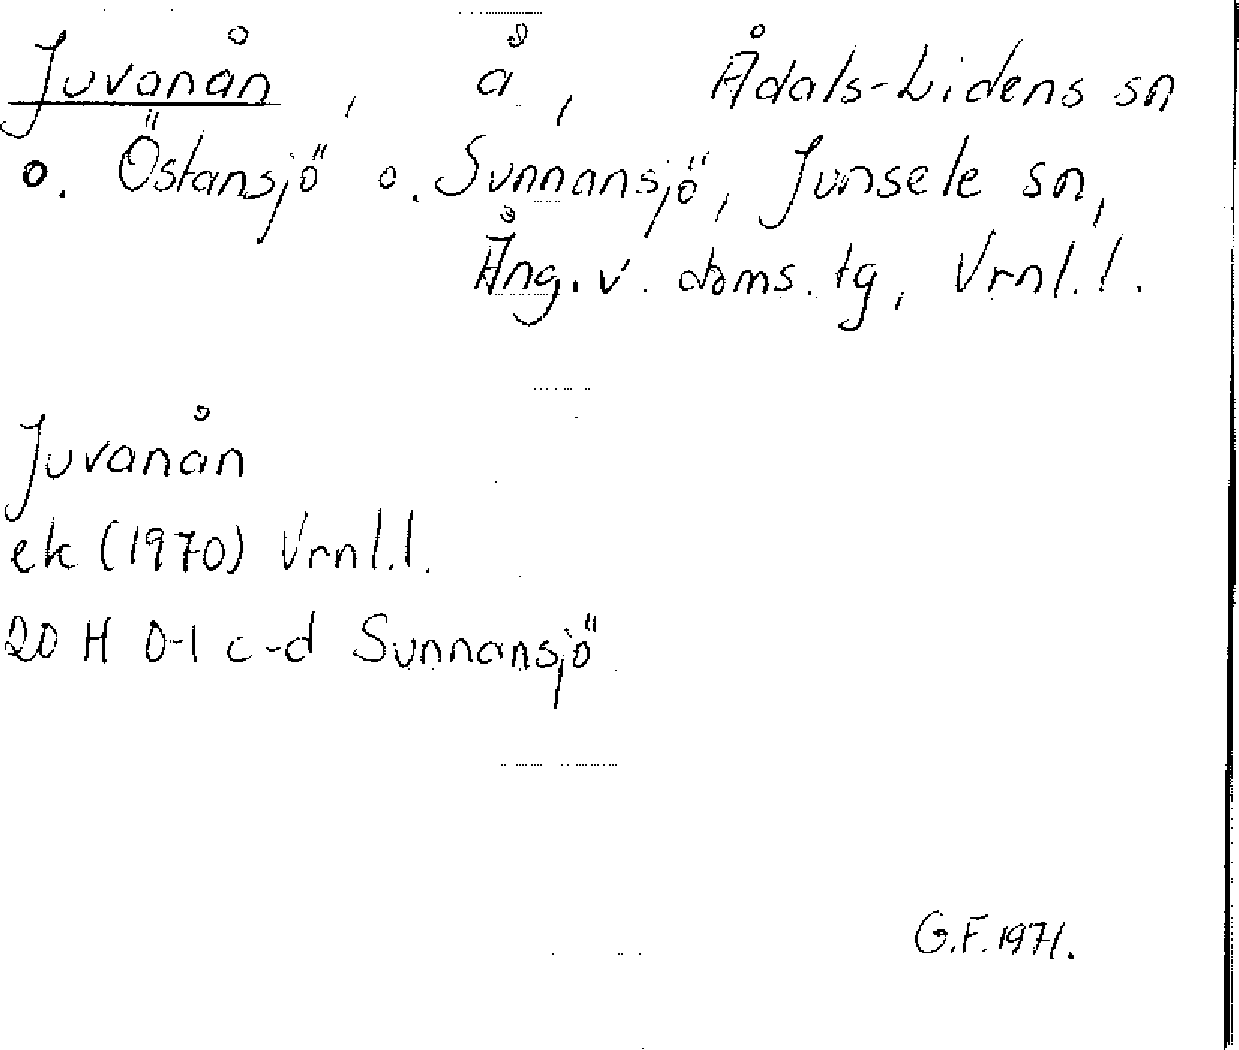 Juvanån, å, Ådals-Lidens sn
o. Östansjö o. Sunnansjö, Junsele sn,
Ång. v. doms. tg, Vrnl. l.
Juvanån
ek (1970) Vrnl. l.
20 H 0-1 c-d Sunnansjö
G.F. 1971.